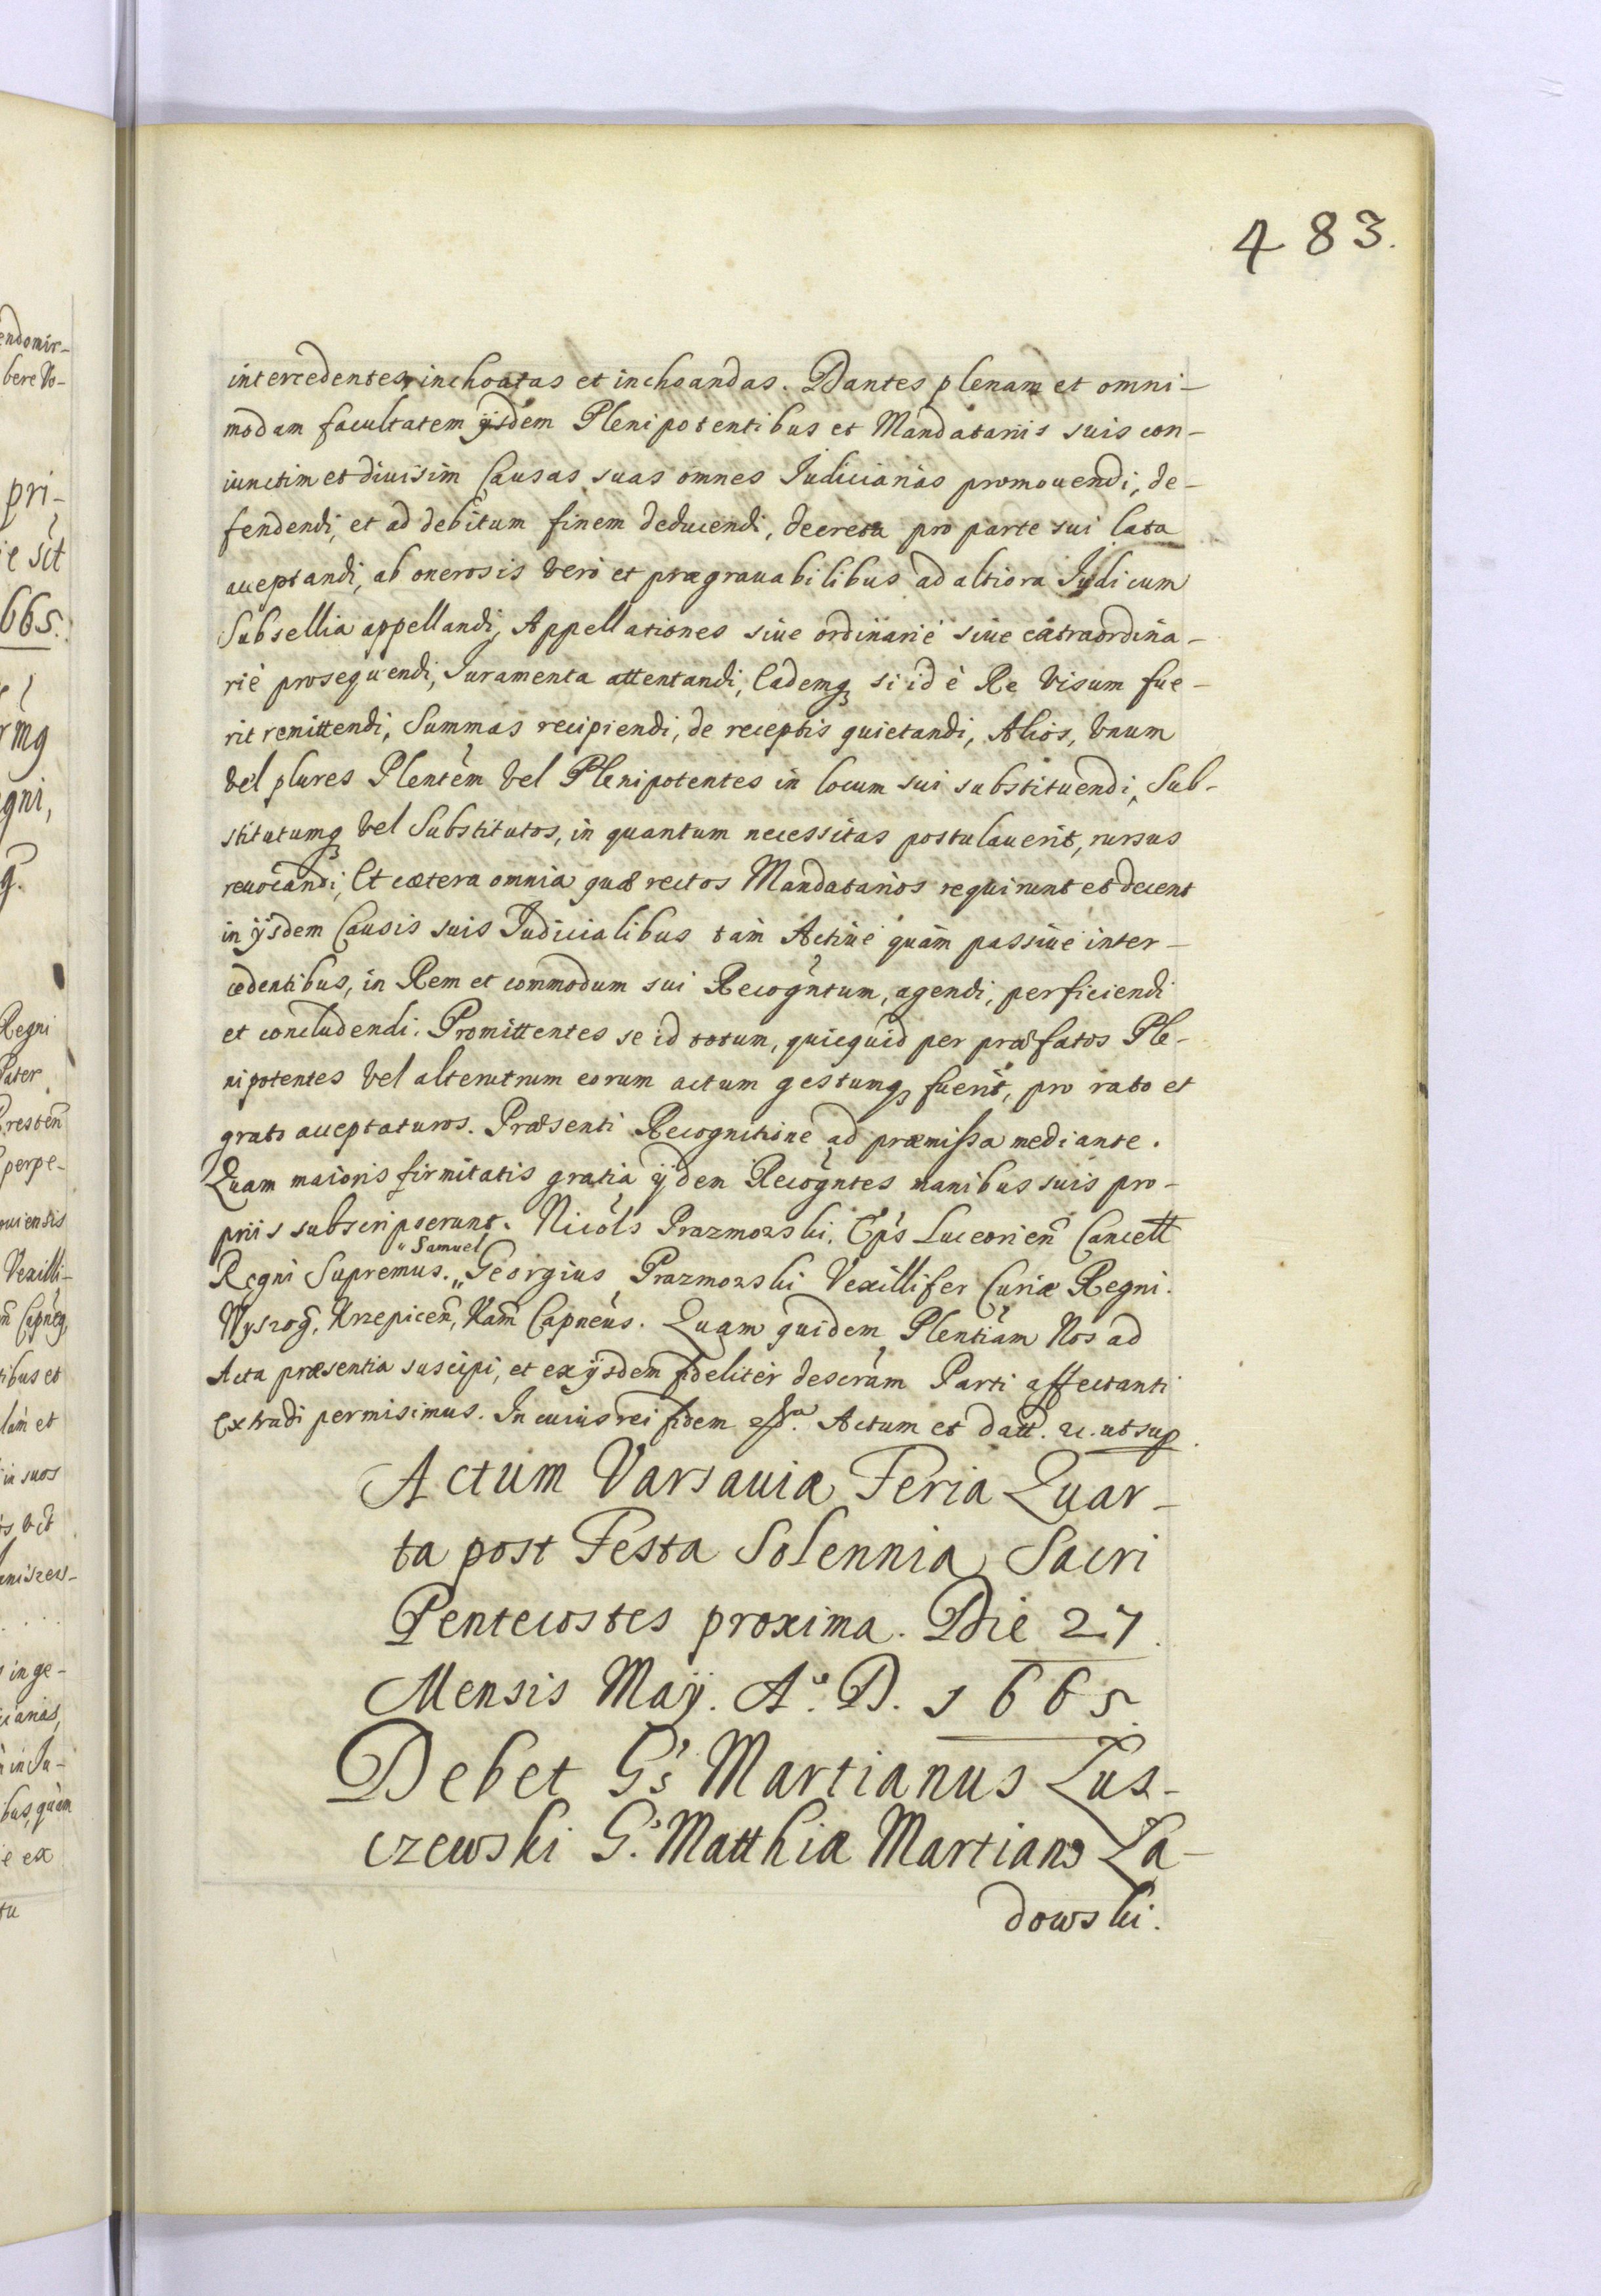 483.
intercedentes, inchoatas et inchoandas. Dantes plenam et omni-
modam facultatem ijsdem Plenipotentibus et Mandatariis suis con-
iunctim et diuisim Causas suas omnes Iudiciarias promouendi, de-
fendendi, et ad debitum finem deducendi, decreta pro parte sui lata
acceptandi, ab onerosis verò et praegrauabilibus ad altiora Iudicum
Subsellia appellandi, Appellationes siue ordinariè siue extraordina-
riè prosequendi, Iuramenta attentandi, Eademq3 si id è Re visum fue-
rit remittendi, Summas recipiendi, de receptis quietandi, Alios, vnum
vel plures Plentem vel Plenipotentes in locum sui substituendi, Sub-
stitutumq3 vel Substitutos, in quantum necessitas postulauerit, rursus
reuocandi, Et caetera omnia quae rectos Mandatarios requirunt et decent
in ijsdem Causis suis Iudicialibus tàm Actiuè quàm passiuè inter-
cedentibus, in Rem et commodum sui Recogntum, agendi, perficiendi
et concludendi. Promittentes se id totum, quicquid per praefatos Ple-
nipotentes vel alterutrum eorum actum gestumq3 fuerit, pro rato et
grato acceptaturos. Praesenti Recognitione ad praemissa mediante.
Quam maioris firmitatis gratia ijdem Recogntes manibus suis pro-
priis subscripserunt. Nicols Prazmowski. Eps Luceorien Cancell
Regni Supremus. „Georgius Prazmowski Vexillifer Curiae Regni.
„Samuel
Wyszog, Krzepicen, Kam Capneus. Quam quidem Plentiam Nos ad
Acta praesentia suscipi, et ex ijsdem fideliter descram Parti affectanti
extradi permisimus. In cuius rei fidem Actum et datt. &c. ut sup.
Actum Varsauiae Feria Quar-
ta post Festa Solennia Sacri
Pentecostes proxima. Die 27.
Mensis Maij. Aº. D. 1665.
Debet Gs Martianus Lus-
czewski G. Matthiae Martiano La-
dowski.
endomir-
bere Vo-
pri-
ie sit
665.
rmq
gni,
q.
Regni
Pater
resten
perpe-
uiensis
Vexilli-
Capneg,
ibus et
làm et
in suos
s vct
miszew-
in ge-
cianas,
in Ju-
ibus, quàm
e ex
tu